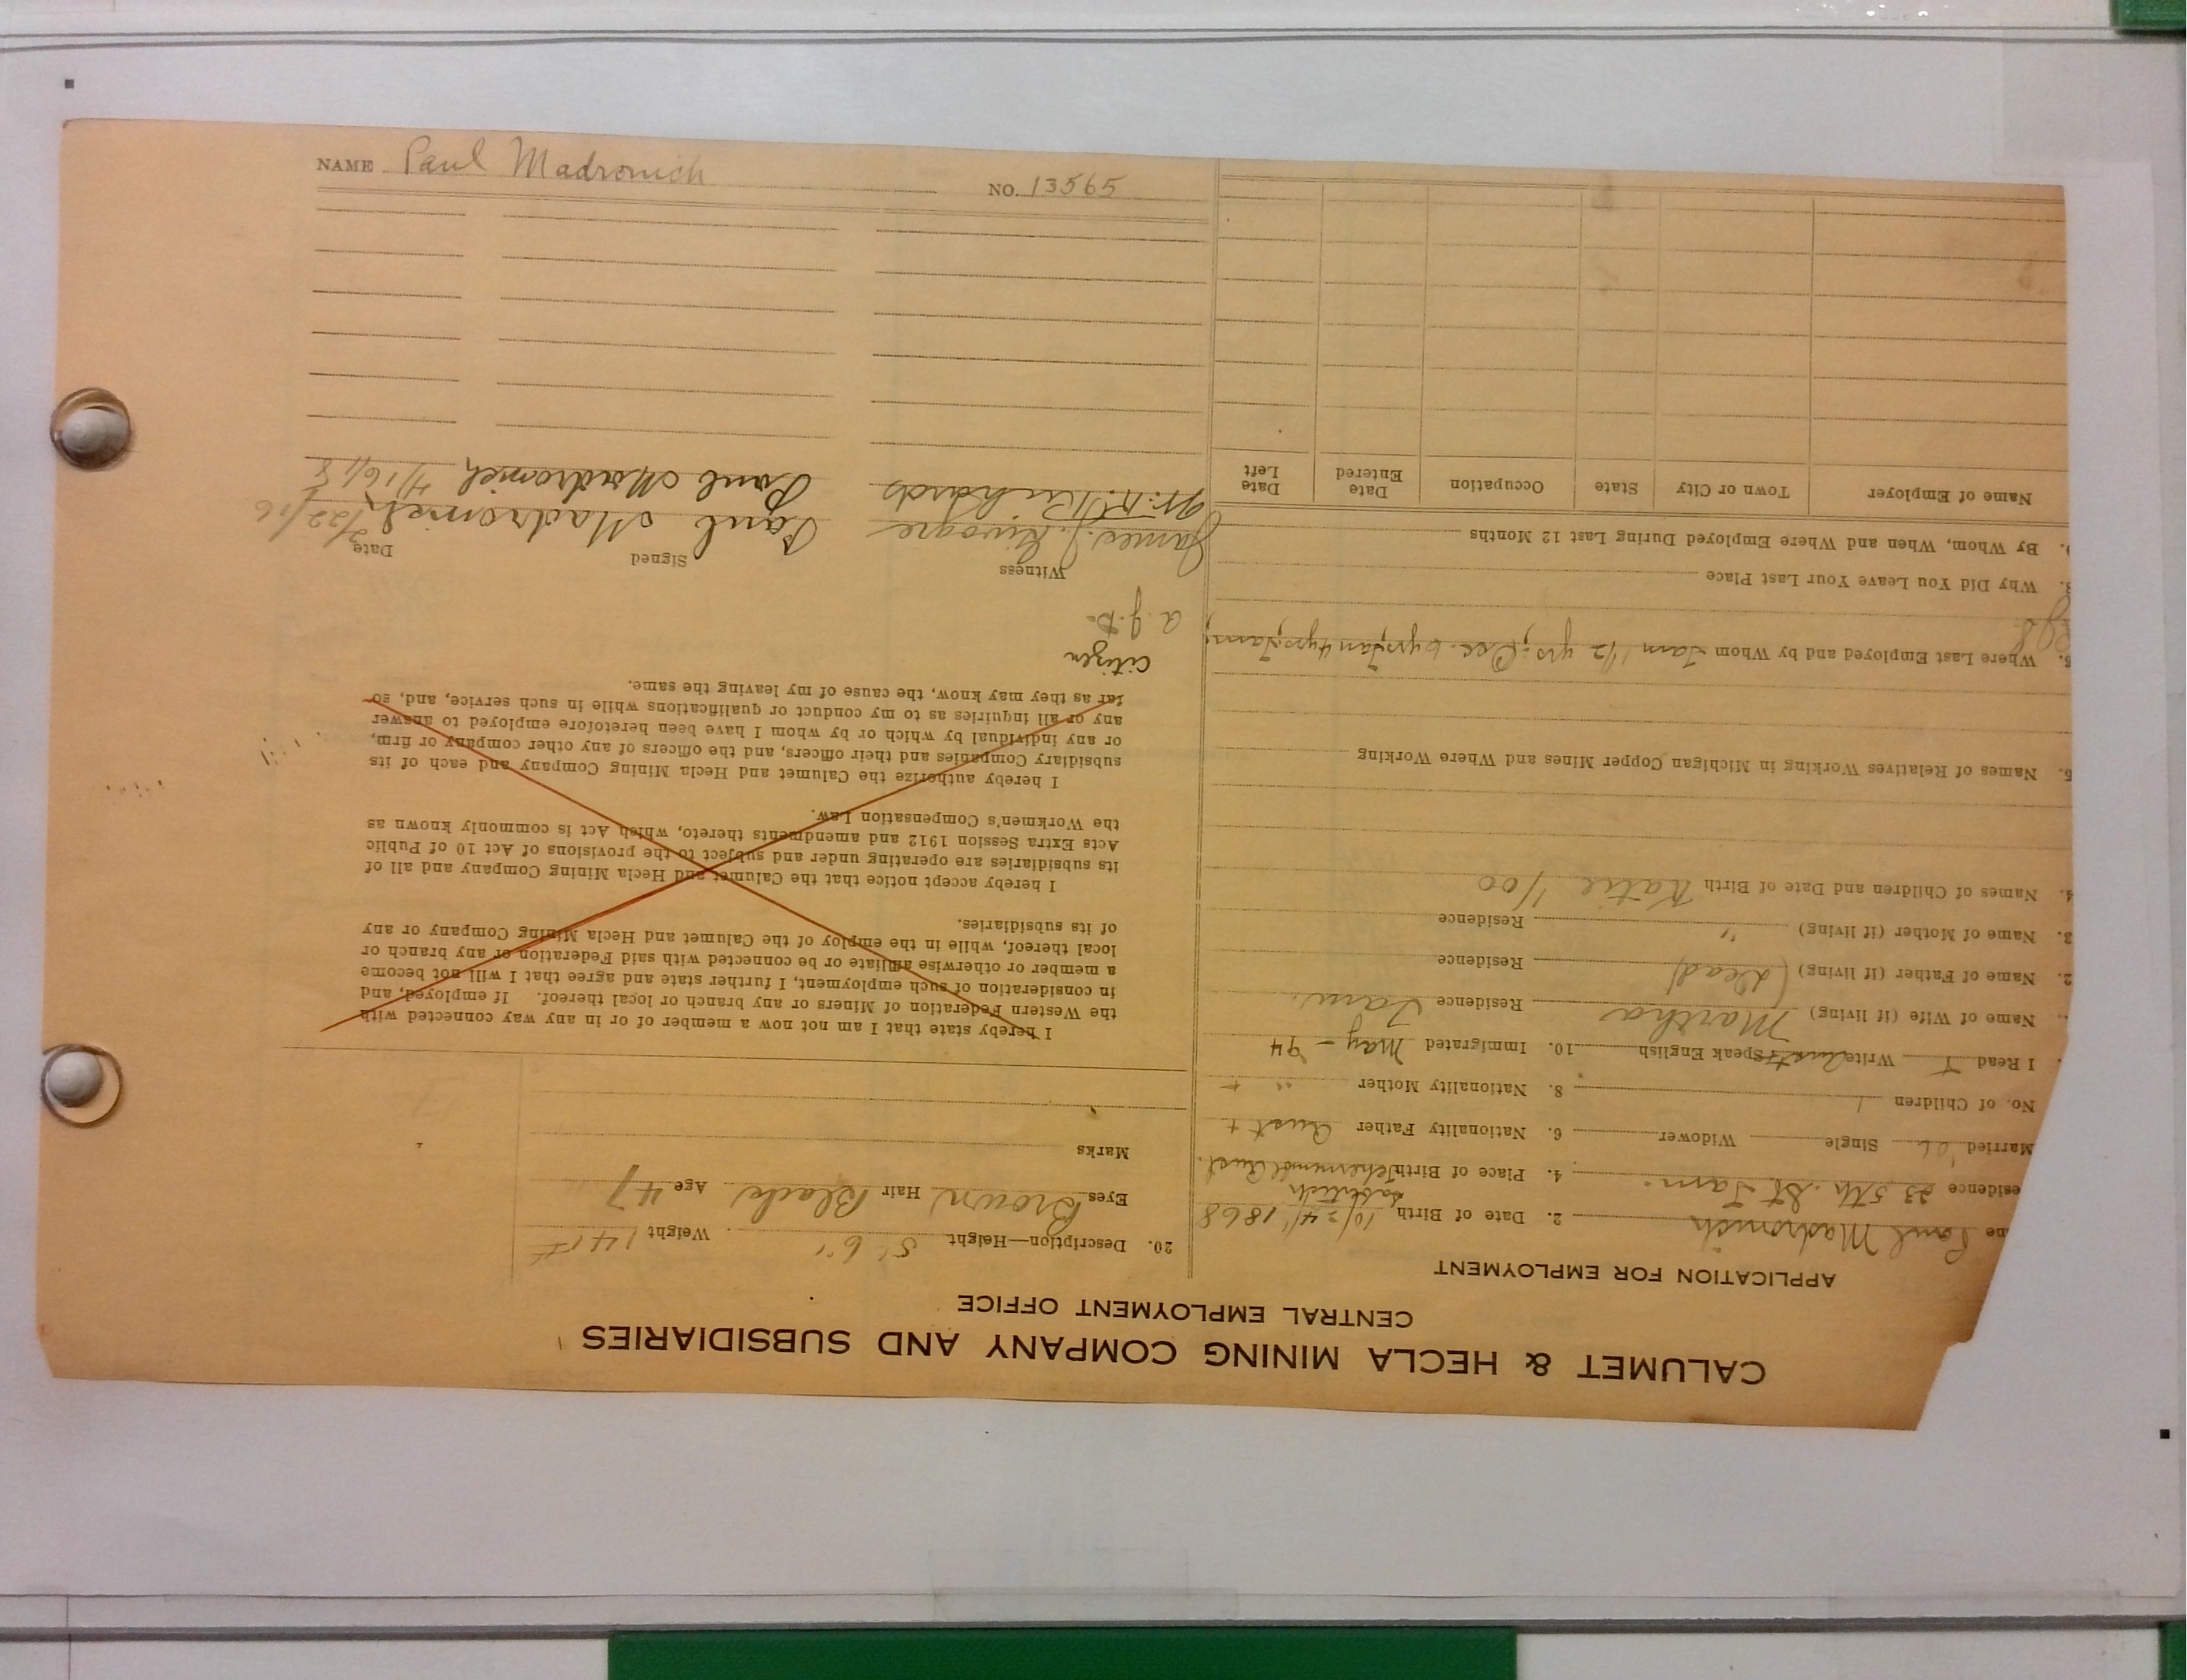 NAME Paul Madronich NO. 13565
CALUMET & HECLA MINING COMPANY AND SUBSIDIARIES
CENTRAL EMPLOYMENT OFFICE
APPLICATION FOR EMPLOYMENT
me Paul Madronich 2. Date of Birth 10/24/1868
esidence 23 5th. St. Tam. 4. Place of Birth Aust.
Married Single Widower 6. Nationality Father Aust +
No. of Children 1 8. Nationality Mother " +
I Read Write Speak English 10. Immigrated May - 94
Name of Wife (if living) Martha Residence Tam.
2. Name of Father (if living) (dead) Residence
3. Name of Mother (if living) " Residence
4. Names of Children and Date of Birth Katie 1/00
5. Names of Relatives Working in Michigan Copper Mines and Where Working
6. Where Last Employed and by Whom Tam 1 1/2 yrs; Osc. 6yrs; Tam 4yrs; Tam;
Why Did You Leave Your Last Place
By Whom, When and Where Employed During Last 12 Months
Name of Employer Town or City State Occupation Date Entered Date Left
20. Description—Height 5' 6" Weight 141#
Eyes Brown Hair Black Age 47
Marks
I hereby state that I am not now a member of or in any way connected with
the Western Federation of Miners or any branch or local thereof. If employed, and
in consideration of such employment, I further state and agree that I will not become
a member or otherwise affiliate or be connected with said Federation or any branch or
local thereof, while in the employ of the Calumet and Hecla Mining Company or any
of its subsidiaries.
I hereby accept notice that the Calumet and Hecla Mining Company and all of
its subsidiaries are operating under and subject to the provisions of Act 10 of Public
Acts Extra Session 1912 and amendments thereto, which Act is commonly known as
the Workmen's Compensation Law.
I hereby authorize the Calumet and Hecla Mining Company and each of its
subsidiary Companies and their officers, and the officers of any other company or firm,
or any individual by which or by whom I have been heretofore employed to answer
any or all inquiries as to my conduct or qualifications while in such service, and, so
far as they may know, the cause of my leaving the same.
Citizen
Witness Signed Date
James J. Paul Madronich /22/16
W. H. Richards Paul Madronich 4/16/18